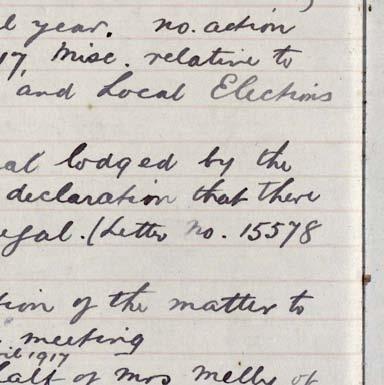 l year. no. action
17, Misc. relative to
and Local Elections
al lodged by the
declaration that there
egal. (Letter No. 15578
tion of the matter to
. meeting
ril 1917
half of Mrs Melly of